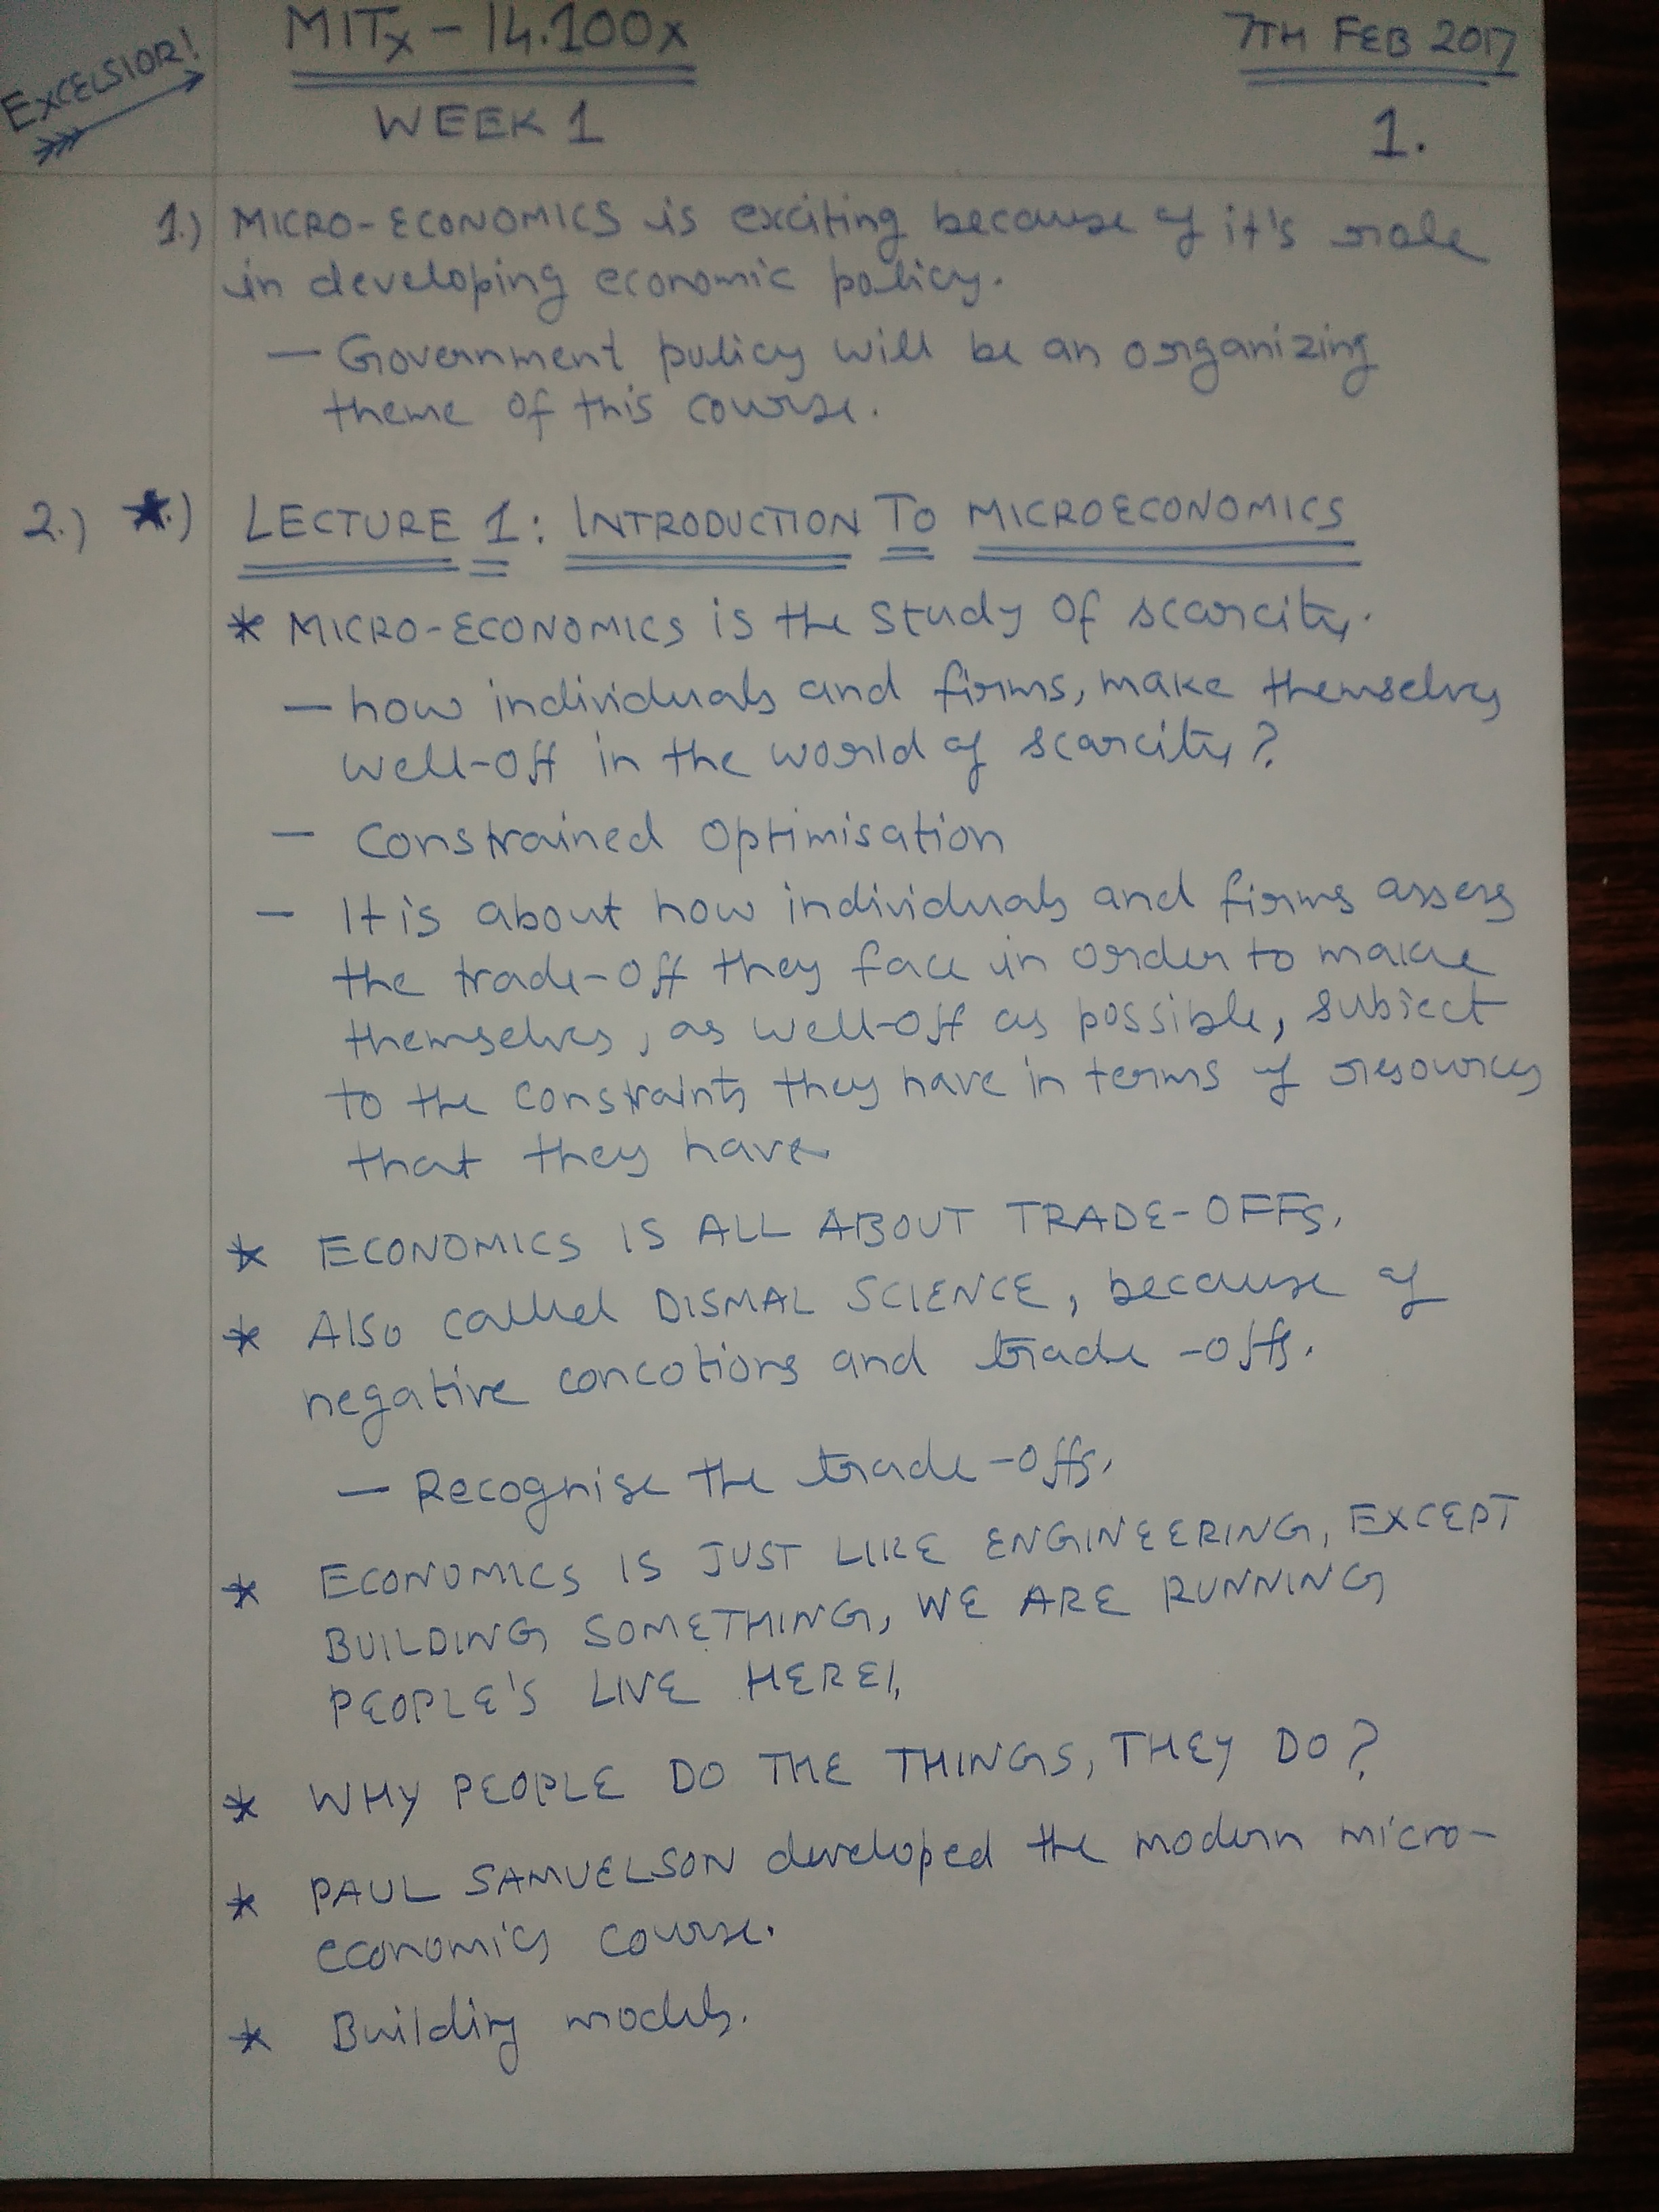 EXCELSIOR!
MITx - 14.100x
7TH FEB 2017
WEEK 1
1.
1.) MICRO-ECONOMICS is exciting because of it's role
in developing economic policy.
— Government policy will be an organizing
theme of this course.
2.) ★.) LECTURE 1: INTRODUCTION TO MICROECONOMICS
* MICRO-ECONOMICS is the study of scarcity.
— how individuals and firms, make themselves
well-off in the world of scarcity?
— Constrained Optimisation
— It is about how individuals and firms assess
the trade-off they face in order to make
themselves, as well-off as possible, subject
to the constraints they have in terms of resources
that they have
* ECONOMICS IS ALL ABOUT TRADE-OFFs.
* Also called DISMAL SCIENCE, because of
negative concotions and trade-offs.
— Recognise the trade-offs.
* ECONOMICS IS JUST LIKE ENGINEERING, EXCEPT
BUILDING SOMETHING, WE ARE RUNNING
PEOPLE'S LIVE HERE!,
* WHY PEOPLE DO THE THINGS, THEY DO?
* PAUL SAMUELSON developed the modern micro-
economics course.
* Building models.